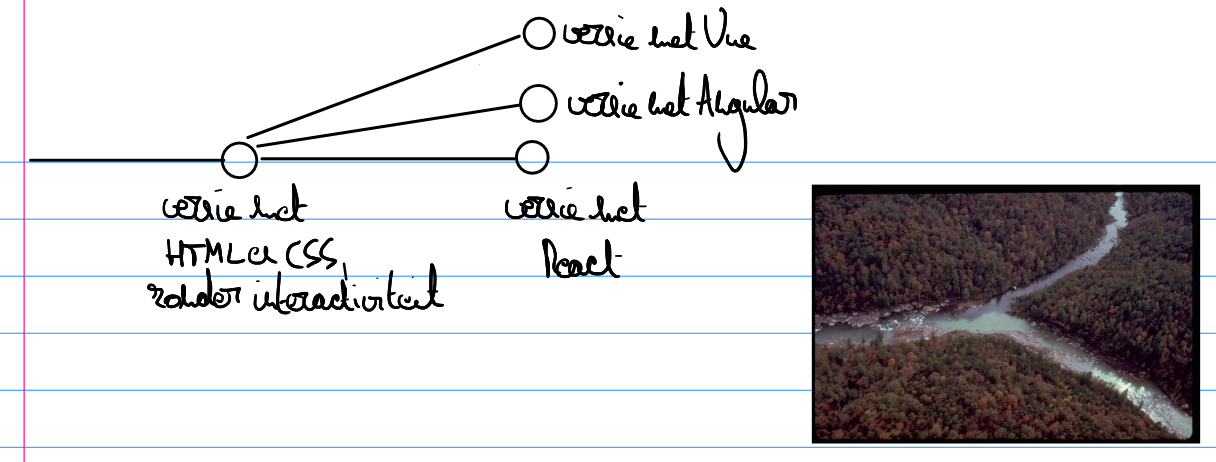 versie met Vue
versie met Angular
versie met
HTML en CSS,
zonder interactiviteit
versie met
React